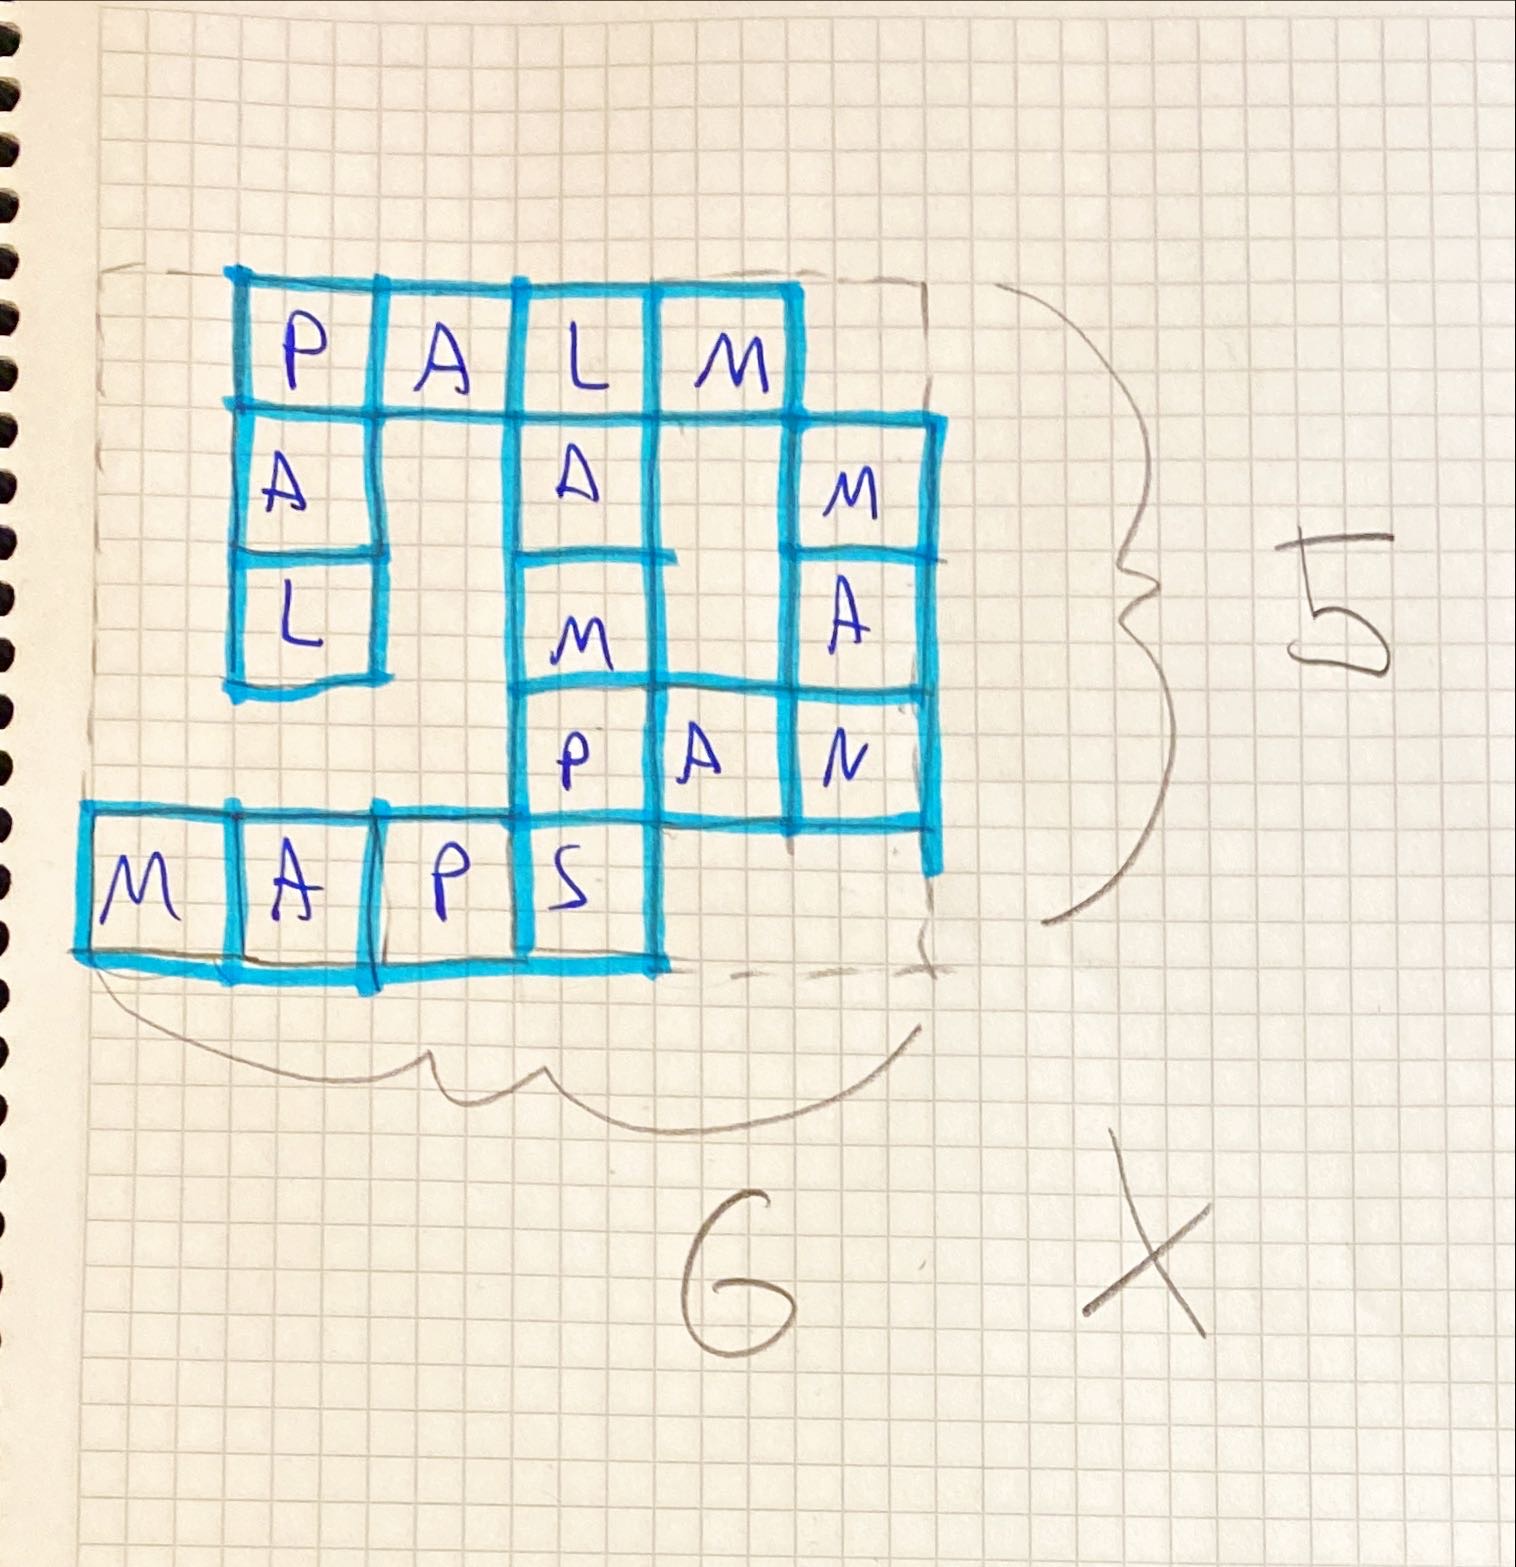 P A L M
A A M
L M A 5
P A N
M A P S
6 X